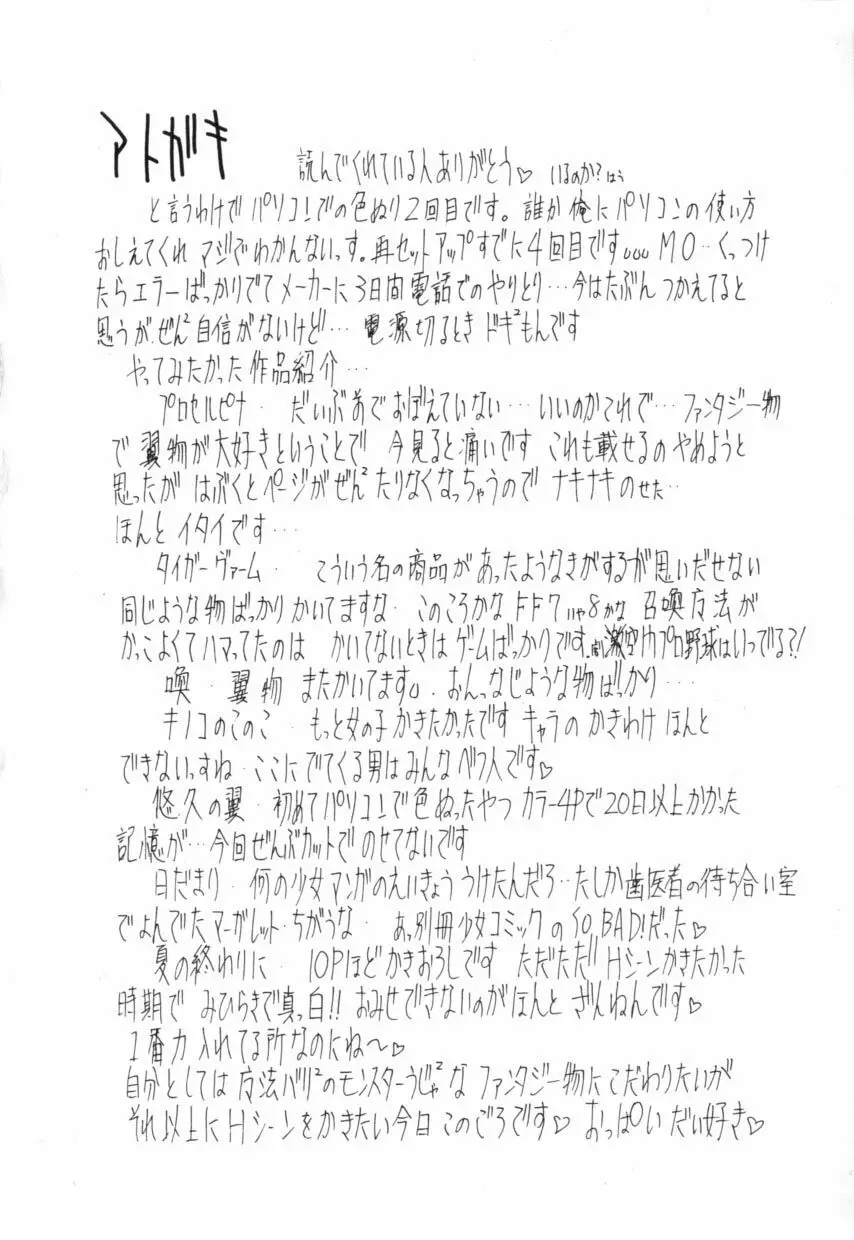 アトガキ
読んでくれている人ありがとう♡ いるのか?はぅ
と言うわけで パソコンでの色ぬり2回目です。誰か俺にパソコンの使い方
おしえてくれ マジでわかんないっす。再セットアップすでに4回目です。。。MO‥くっつけ
たらエラーばっかりでてメーカーに3日間電話でのやりとり…今はたぶんつかえてると
思うが、ぜん²自信がないけど… 電源切るとき ドキ²もんです
やってみたかった作品紹介…
プロセルピナ・ だいぶ前でおぼえていない…いいのかこれで…ファンタジー物
で翼物が大好きということで 今見ると痛いです これも載せるのやめようと
思ったが はぶくとページがぜん²たりなくなっちゃうので ナキナキのせた‥
ほんと イタイです…
タイガーヴァーム・ こういう名の商品があったようなきがするが思いだせない
同じような物ばっかりかいてますな・このころかなFF7いや8かな 召喚方法が
かっこよくてハマってたのは かいてないときはゲームばっかりです。劇空間プロ野球はいつでる?!
喚・翼物 またかいてます。おんなじような物ばっかり…
キノコのこのこ・もっと女の子かきたかったです キャラのかきわけほんと
できないっすね・ここにでてくる男はみんなベツ人です♡
悠久の翼・初めてパソコンで色ぬったやつ カラー4Pで20日以上かかった
記憶が…今回ぜんぶカットでのせてないです
日だまり・何の少女マンガのえいきょううけたんだろ‥たしか歯医者の待ち合い室
でよんでたマーガレット・ちがうな・あっ別冊少女コミックのSO BAD!だった♡
夏の終わりに・10Pほどかきおろしです ただただ!!Hシーンかきたかった
時期で みひらきで真っ白!! おみせできないのがほんと ざんねんです♡
1番力入れてる所なのにね〜♡
自分としては 方法バリ²のモンスターうじゃ²な ファンタジー物にこだわりたいが
それ以上にHシーンをかきたい今日このごろです♡ おっぱい だい好き♡